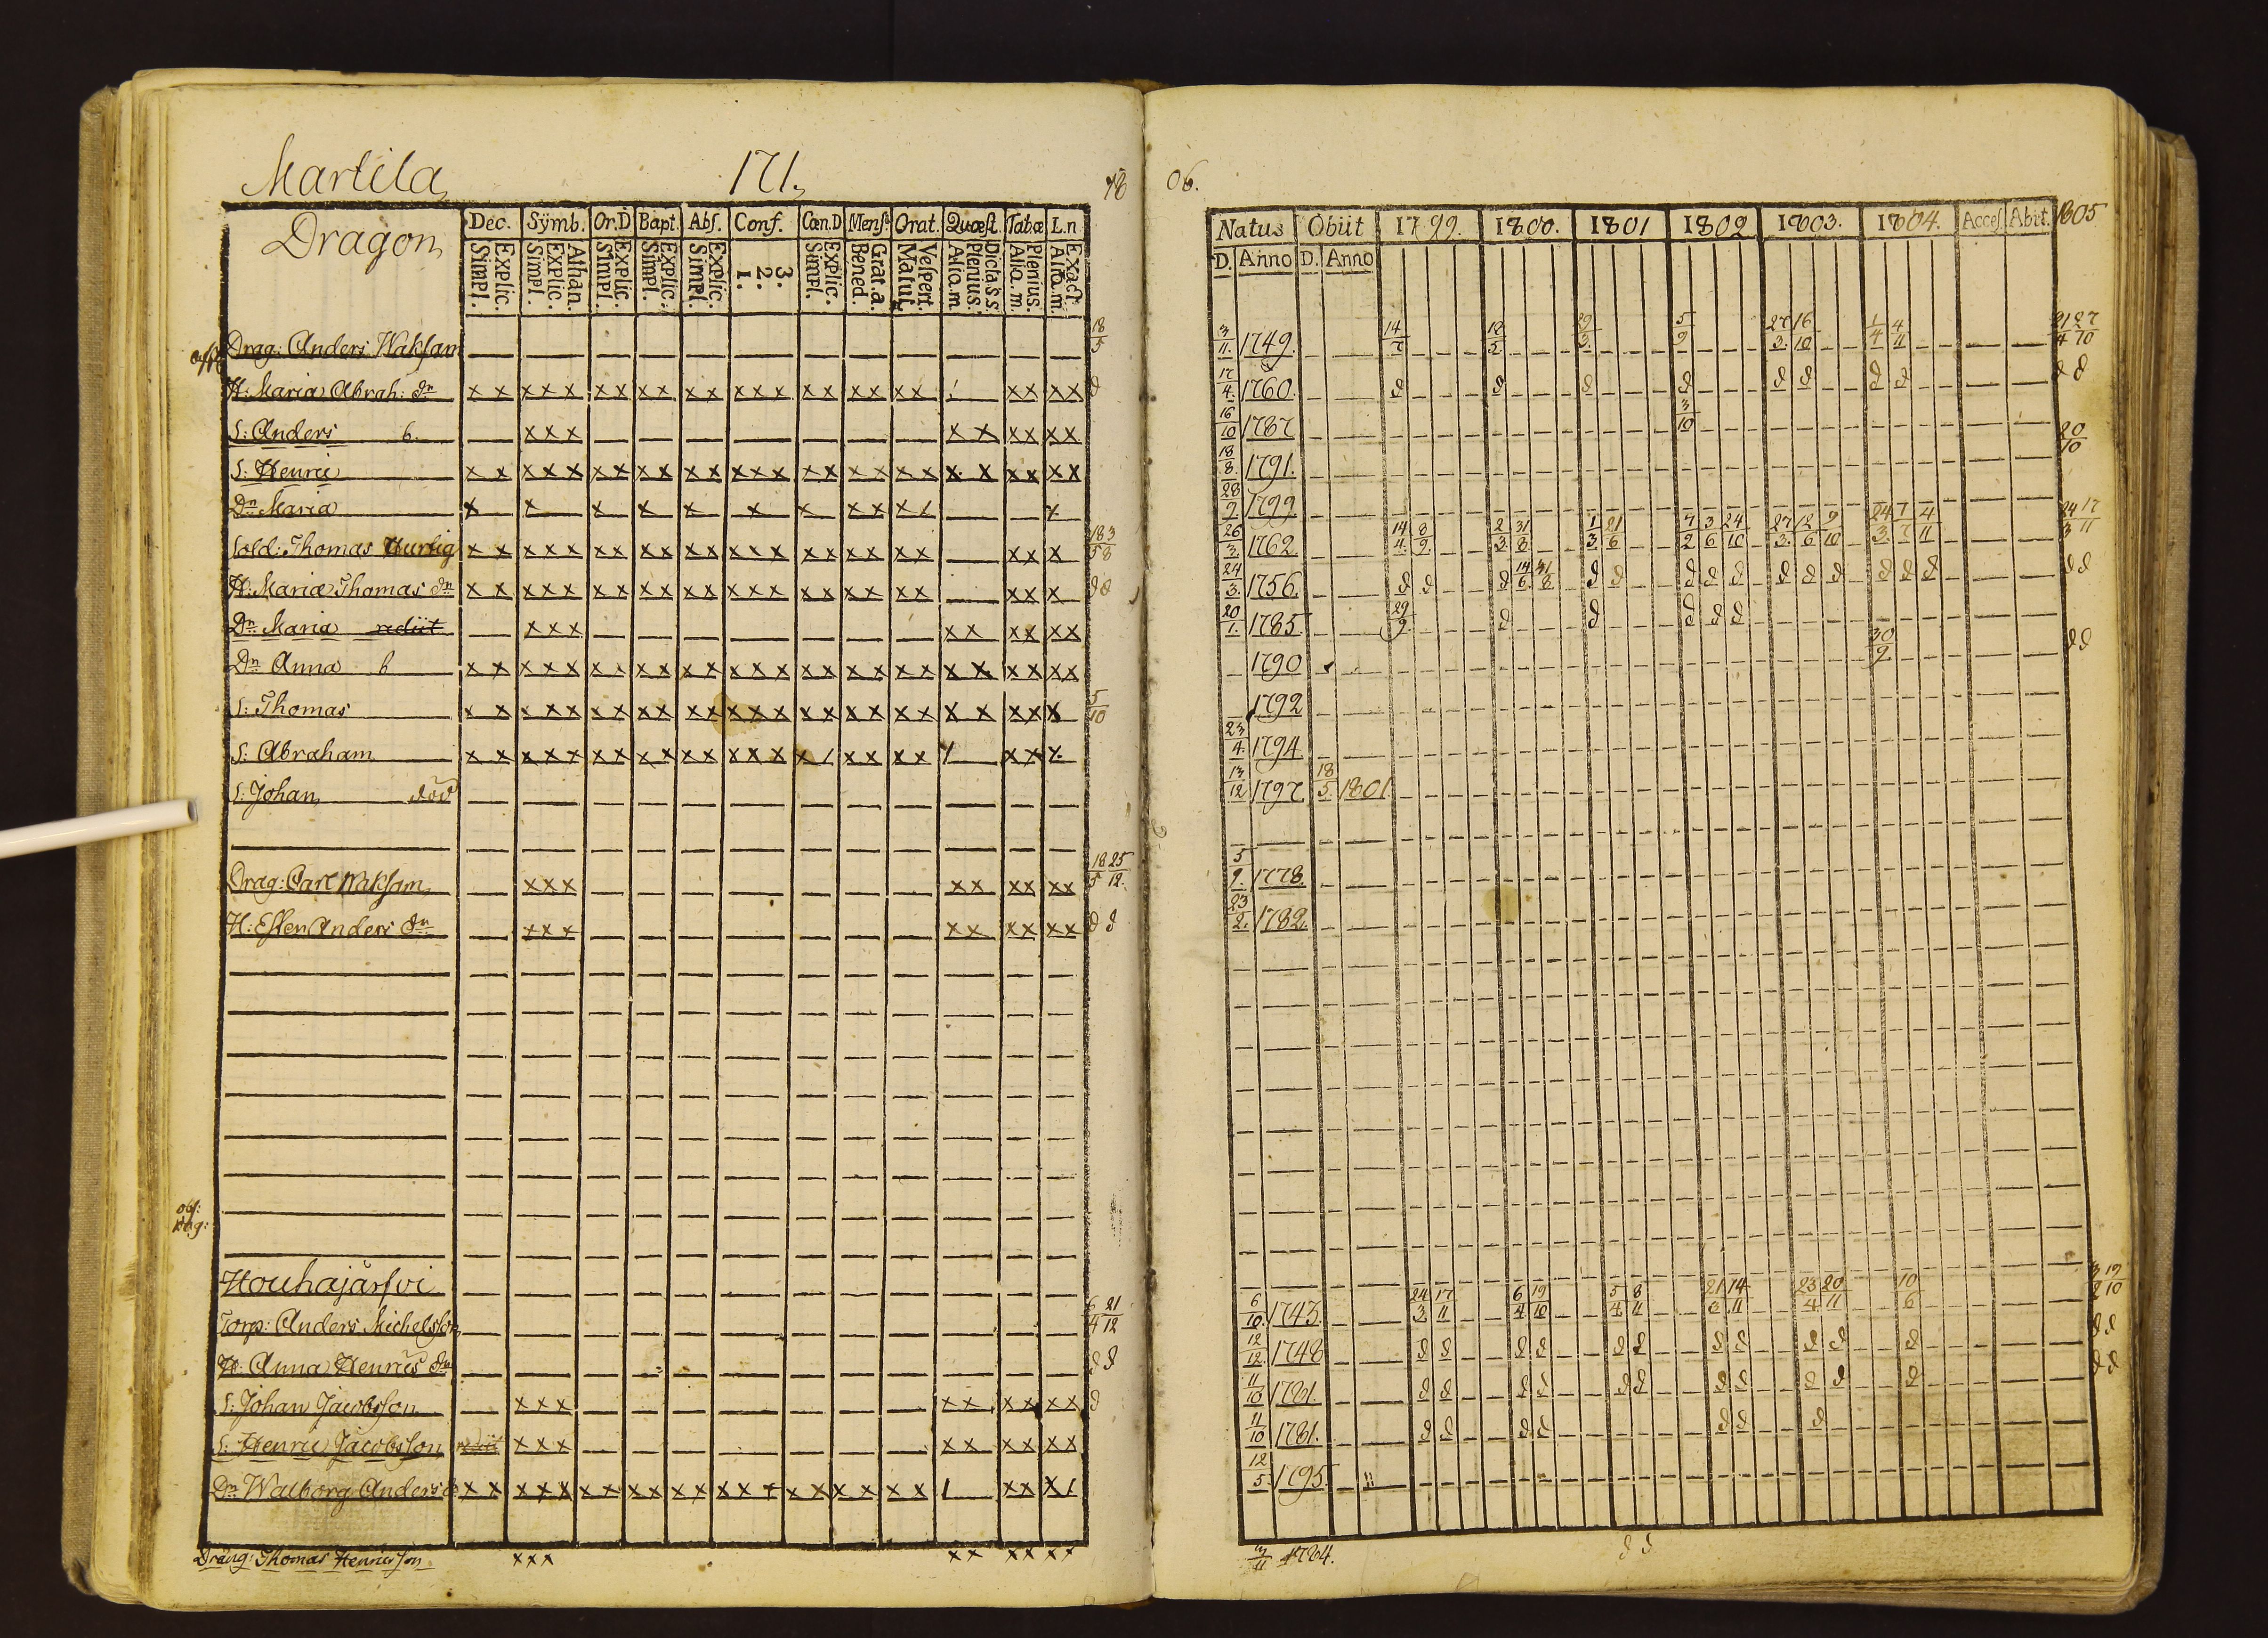 Martila 171.
Dragon
Dec. Sÿmb. Or.D Bapt. Abſ. Conf. Cœn.D Menſæ Orat. Quæſt. Tabæ L.n
Explic. Simpl. Athan. Explic. Simpl. Explic. Simpl. Explic. Simpl. Explic. Simpl. 3. 2. 1. Explic. Simpl. Grat.a. Bened. Veſpert. Matut. Dicta s.s. Plenius. Aliq.m Plenius. Aliq.m. Exact. Aliq.m.
Drag: Anders Wakſam 18/5
H: Maria Abrah: dr x x x x x x x x x x x x x x x x x x x x x x x x d
S: Anders 6. x x x x x x x x x
S: Henric x x x x x x x x x x x x x x x x x x x x x x x x x x
Dr Maria x x x x x x x x x x x
Sold: Thomas Hurtig x x x x x x x x x x x x x x x x x x x x x x x 18/5 3/8
H: Maria Thomas dr x x x x x x x x x x x x x x x x x x x x x x x d d
Dr Maria rediit x x x x x x x x x
Dr Anna b x x x x x x x x x x x x x x x x x x x x x x x x x x
S: Thomas x x x x x x x x x x x x x x x x x x x x x x x x x 5/10
S: Abraham x x x x x x x x x x x x x x x x x x x x x x
S: Johan död
Drag: Carl Wakſam x x x x x x x x x 18/5 25/12
H: Anders dr x x x x x x x x x d d
Torp: Anders Michelſson 6/4 21/12
H: Anna Henrics dr d d
S: Johan Jacobſson x x x x x x x x x d
S: Henric Jacobsſon rediit x x x x x x x x x
Dr Walborg Anders x x x x x x x x x x x x x x x x x x x x x x
Dräng: Thomas Henricſson x x x x x x x x x
06.
Natus Obiit 1799. 1800. 1801 1802 1803. 1804. Acceſ. Abit. 1805
D. Anno D. Anno
3/11. 1749. 14/7 18/5 29/3. 5/9 27/3. 16/10 1/4 4/11 21/4 27/10
17/4. 1760. d d d d d d d d d d
16/10 1787 3/10
18/8. 1791. 20/10
28/9 1799
26/3. 1762 14/4. 8/9. 2/3. 31/8. 1/3 21/6 7/2 3/6 24/10 27/3. 12/6 9/10 24/3. 7/7 4/11 24/3 17/11
24/3. 1756. d d d 14/6. 31/8 d d d d d d d d d d d d d
20/1. 1785. 29/9. d d d d d
1790 30/9 d d
1792
23/4. 1794
13/12 1797 18/5. 1801
5/9. 1778.
23/2. 1782.
6/10. 1743. 24/3 17/11 6/4 19/10 5/4 8/11 21/3 14/11 23/4 20/11 10/6
12/12. 1748 d d d d d d d d d d d d d
11/10 1781. d d d d d d d d d d d d d
11/10 1781. d d d d d d d
12/5. 1795
3/11 1784. d d